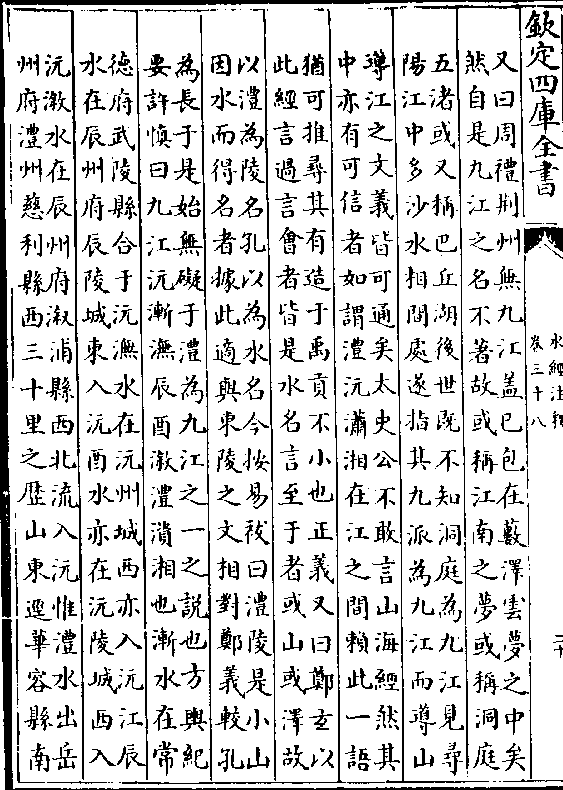 欽定四庫全書
水經注釋
卷三十八
又曰周禮荆州無九江盖已包在藪澤雲夢之中矣
然自是九江之名不著故或稱江南之夢或稱洞庭
五渚或又稱巴丘湖後世既不知洞庭為九江見尋
陽江中多沙水相間處遂指其九派為九江而導山
導江之文義皆可通矣太史公不敢言山海經然其
中亦有可信者如謂澧沅瀟湘在江之間頼此一語
猶可推尋其有造于禹貢不小也正義又曰鄭玄以
此經言過言會者皆是水名言至于者或山或澤故
以澧為陵名孔以為水名今按易祓曰澧陵是小山
因水而得名者據此適與東陵之文相對鄭義較孔
為長于是始無礙于澧為九江之一之說也方輿紀
要許慎曰九江沅漸潕辰酉漵澧濆湘也漸水在常
德府武陵縣合于沅潕水在沅州城西亦入沅江辰
水在辰州府辰陵城東入沅酉水亦在沅陵城西入
沅漵水在辰州府溆浦縣西北流入沅惟澧水出岳
州府澧州慈利縣西三十里之歴山東逕華容縣南